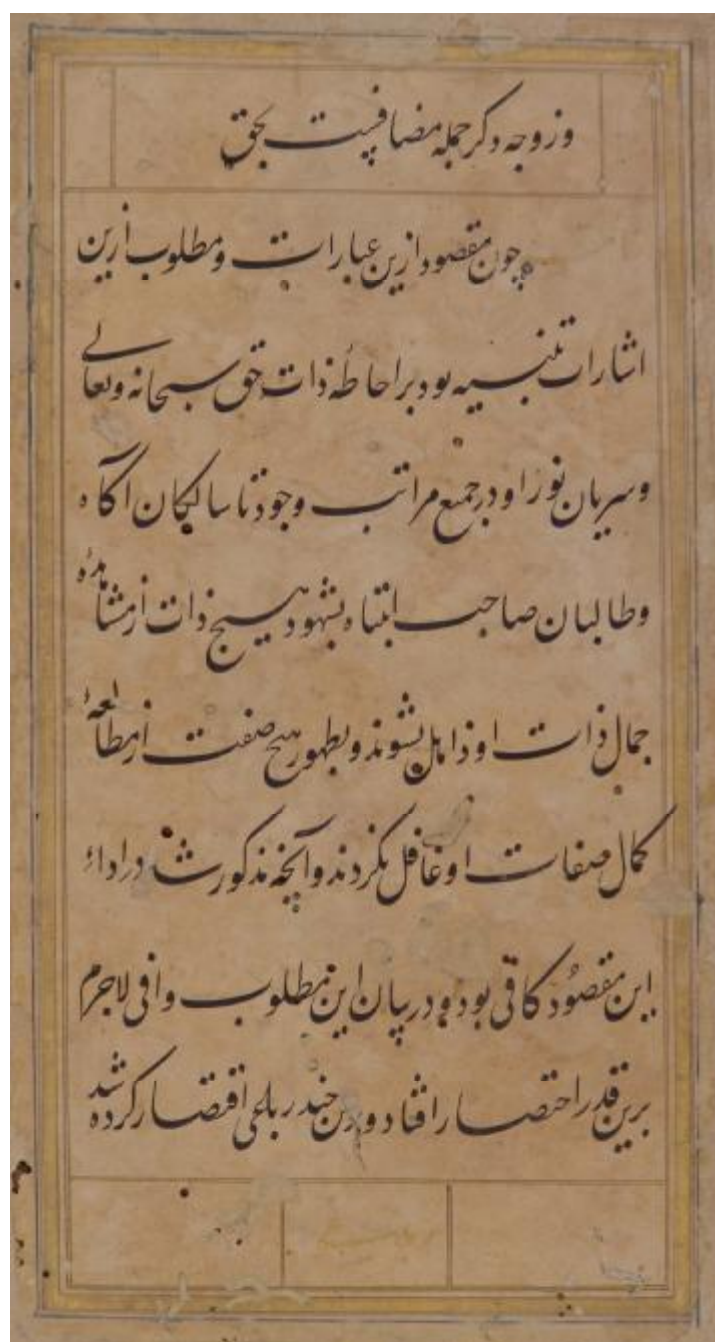 وز وجه دکر جمله مضافست بحق
چون مقصود ازین عبارات و مطلوب ازین
اشارات تنبیه بود بر احاطهٔ ذات حق سبحانه و تعالی
و سریان نور او در جمیع مراتب وجود تا سالکان آکاه
و طالبان صاحب انتباه بشهود هیچ ذات از مشاهدهٔ
جمال ذات او ذاهل نشوند و بظهور هیچ صفت از مطالعهٔ
کمال صفات او غافل نکردند و آنچه مذکور شد در اداء
این مقصود کافی بود و در بیان این مطلوب وافی لاجرم
برین قدر اختصار افتاد و برین چند رباعی اقتصار کرده شد